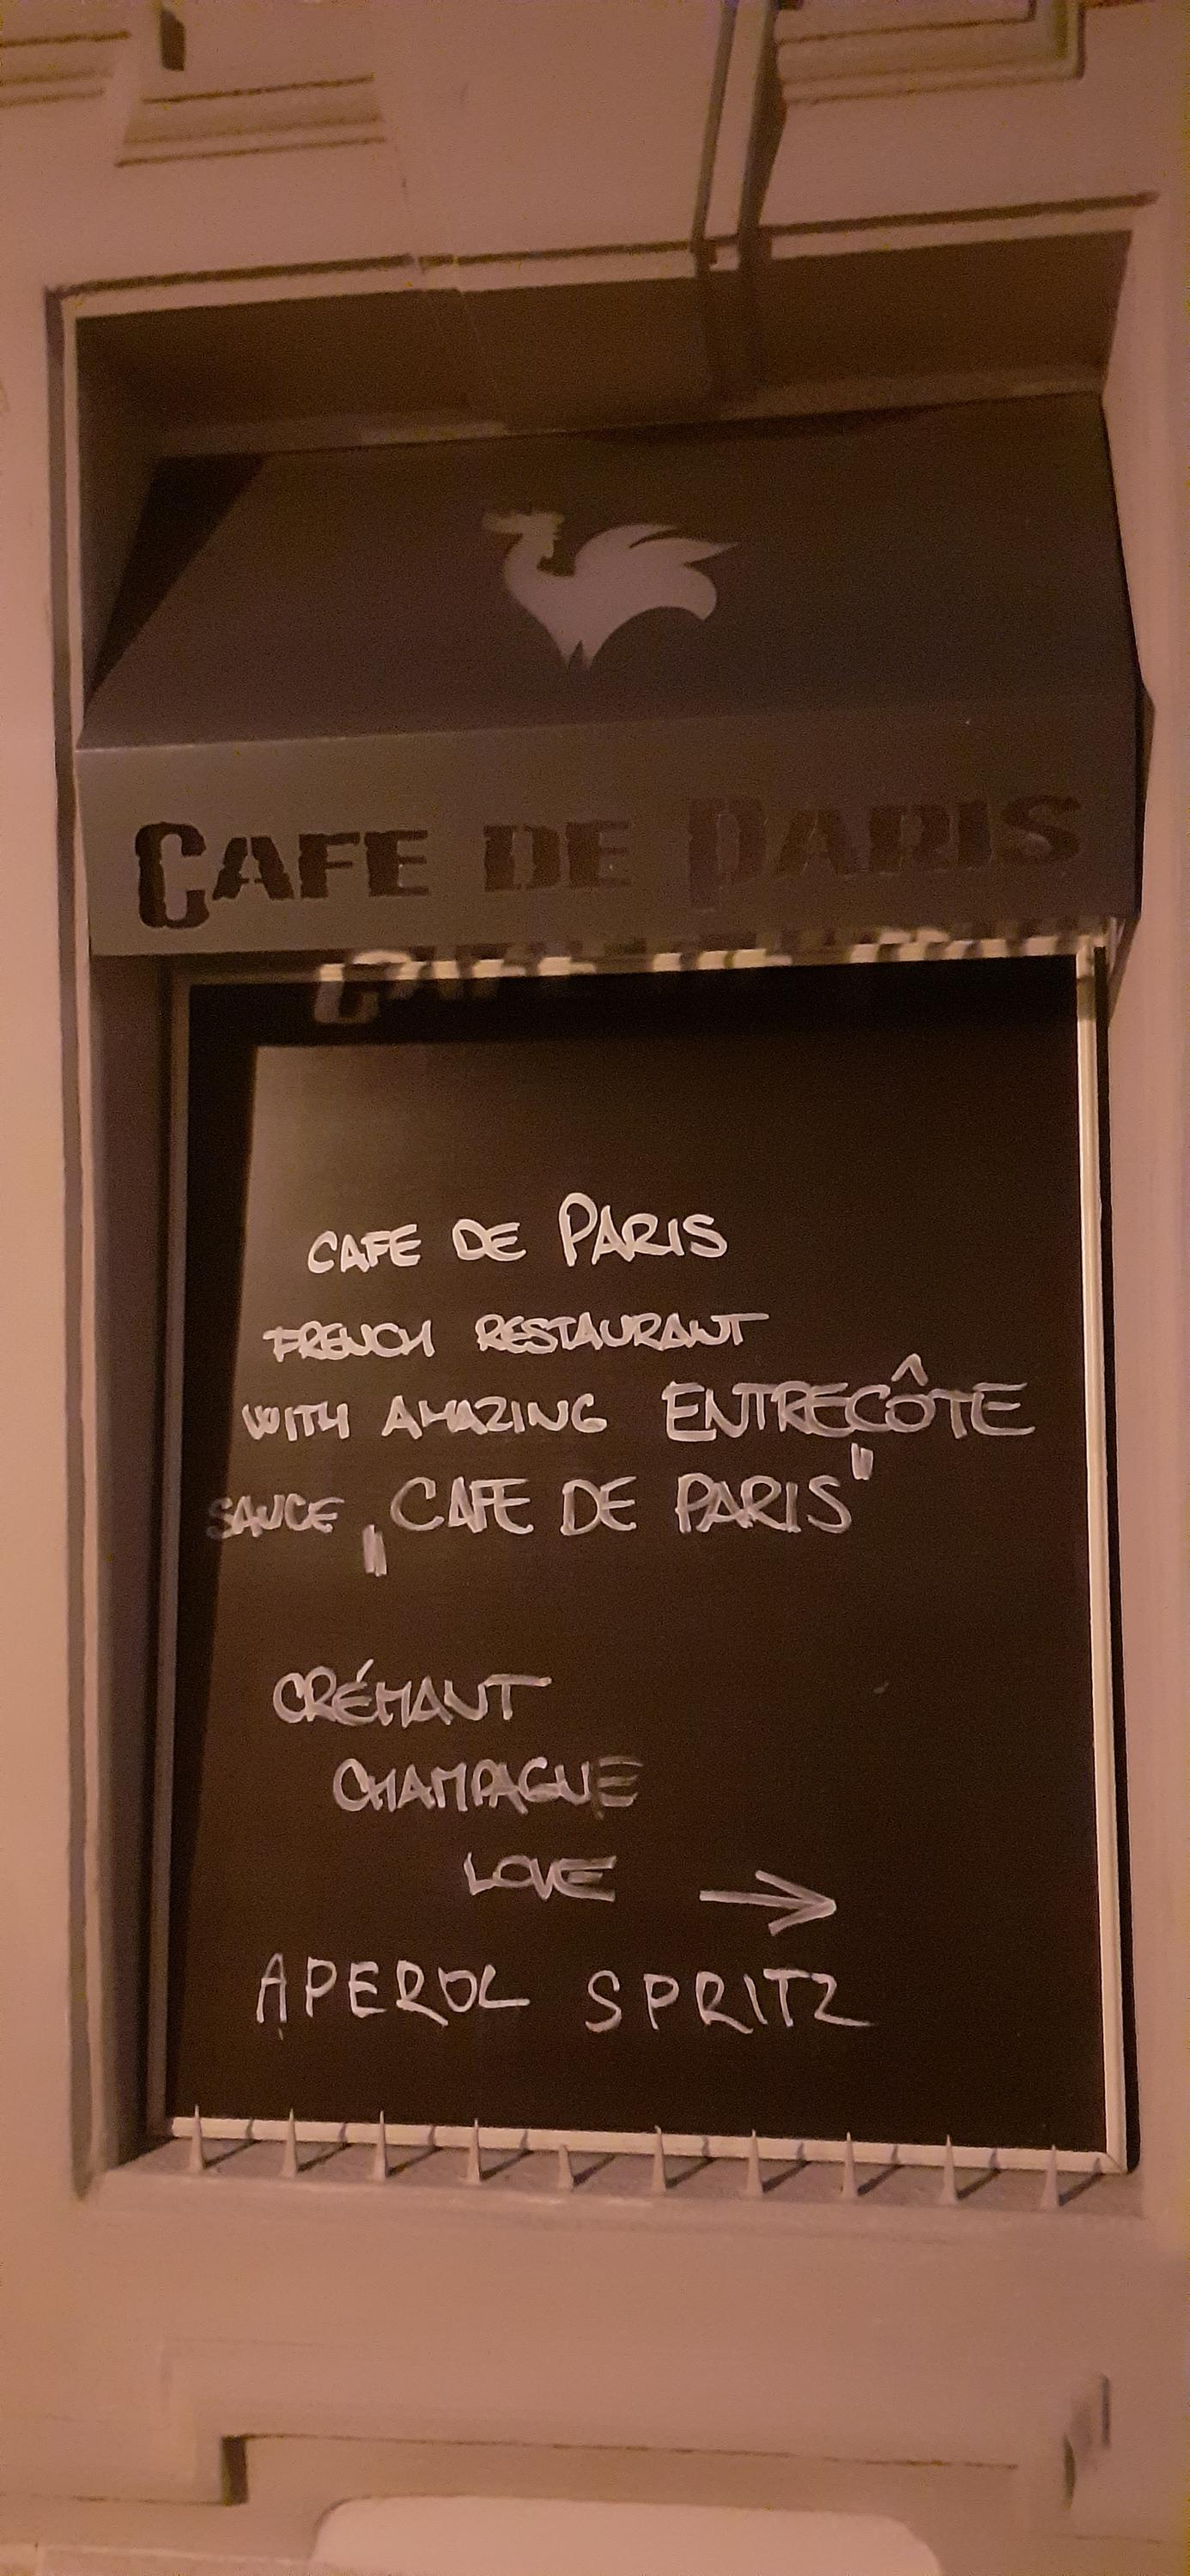 CAFE DE PARIS
CAFE DE PARIS
FRENCH RESTAURANT
WITH AMAZING ENTRECÔTE
SAUCE „CAFE DE PARIS"
CRÉMANT
CHAMPAGNE
LOVE →
APEROL SPRITZ